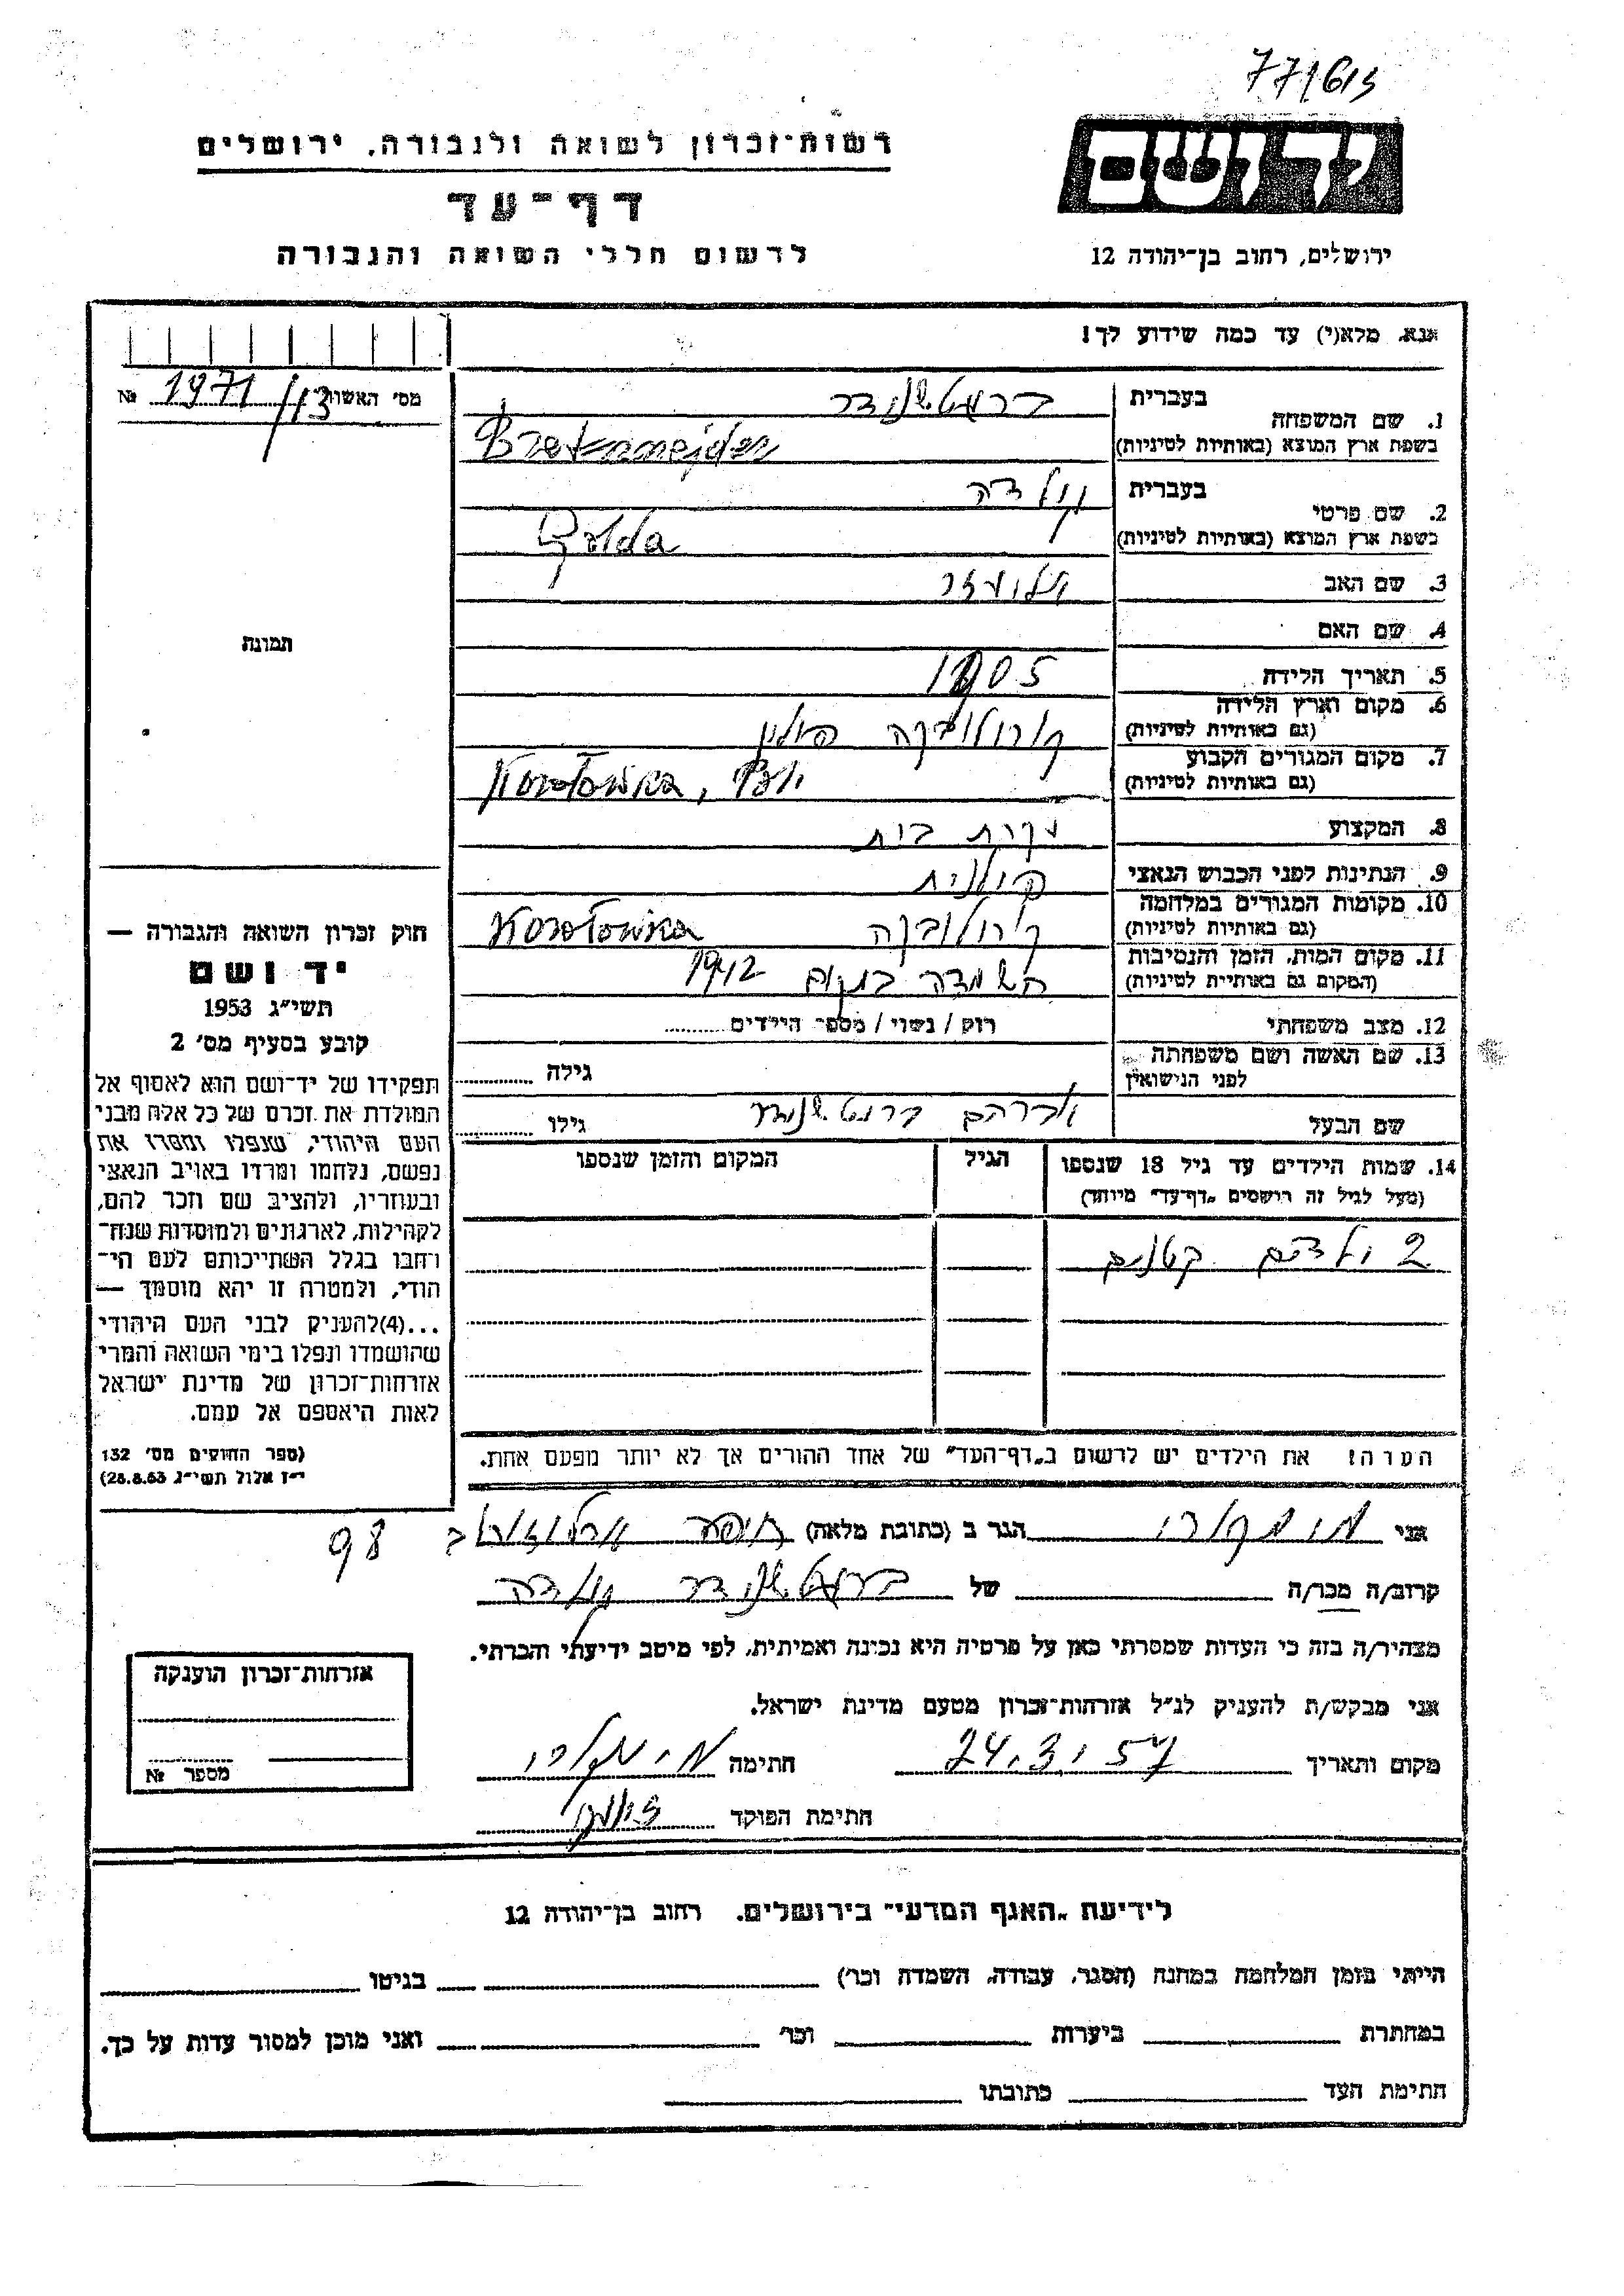 77/613
יד ושם
רשות־זכרון לשואה ולגבורה, ירושלים
דף־עד
לרשום חללי השואה והגבורה
ירושלים, רחוב בן־יהודה 12
אנא, מלא(י) עד כמה שידוע לך!
מס׳ האשור 1971/13 №
1. שם המשפחה
בעברית
בשפת ארץ המוצא (באותיות לטיניות)
2. שם פרטי
בעברית גולדה
בשפת ארץ המוצא (באותיות לטיניות) Golda
3. שם האב
4. שם האם
5. תאריך הלידה 1905
6. מקום וארץ הלידה
(גם באותיות לטיניות) קורולובקה פולין
7. מקום המגורים הקבוע
(גם באותיות לטיניות) Korolowka, Pol
8. המקצוע עקרת בית
9. הנתינות לפני הכבוש הנאצי פולנית
10. מקומות המגורים במלחמה
(גם באותיות לטיניות) קורולובקה Korolowka
11. מקום המות, הזמן והנסיבות
(המקום גם באותיית לטיניות) השמדה במקום 1942
12. מצב משפחתי רוק / נשוי / מספר הילדים
13. שם האשה ושם משפחתה
לפני הנישואין גילה
שם הבעל אברהם גילו
14. שמות הילדים עד גיל 18 שנספו
(מעל לגיל זה רושמים „דף־עד״ מיוחד)
הגיל
המקום והזמן שנספו
2 ילדים קטנים
הערה: את הילדים יש לרשום ב„דף־העד״ של אחד ההורים אך לא יותר מפעם אחת.
תמונה
חוק זכרון השואה והגבורה —
יד ושם
תשי״ג 1953
קובע בסעיף מס׳ 2
תפקידו של יד־ושם הוא לאסוף אל
המולדת את זכרם של כל אלה מבני
העם היהודי, שנפלו ומסרו את
נפשם, נלחמו ומרדו באויב הנאצי
ובעוזריו, ולהציב שם וזכר להם,
לקהילות, לארגונים ולמוסדות שנח־
רחבו בגלל השתייכותם לעם הי־
הודי, ולמטרה זו יהא מוסמך —
...(4)להעניק לבני העם היהודי
שהושמדו ונפלו בימי השואה והמרי
אזרחות־זכרון של מדינת ישראל
לאות היאספם אל עמם.
(ספר החוקים מס׳ 132
י״ז אלול תשי״ג 28.8.53)
אני הגר ב (כתובת מלאה) חיפה ארלוזורוב 98
קרוב/ה מכר/ה של גולדה
מצהיר/ה בזה כי העדות שמסרתי כאן על פרטיה היא נכונה ואמיתית, לפי מיטב ידיעתי והכרתי.
אני מבקש/ת להעניק לנ״ל אזרחות־זכרון מטעם מדינת ישראל.
מקום ותאריך 24.3.57 חתימה
חתימת הפוקד
אזרחות־זכרון הוענקה
מספר №
לידיעת „האגף המדעי״ בירושלים, רחוב בן־יהודה 12
הייתי בזמן המלחמה במחנה (הסגר, עבודה, השמדה וכר׳) בגיטו
במחתרת ביערות וכר׳ ואני מוכן למסור עדות על כך.
חתימת העד כתובתו